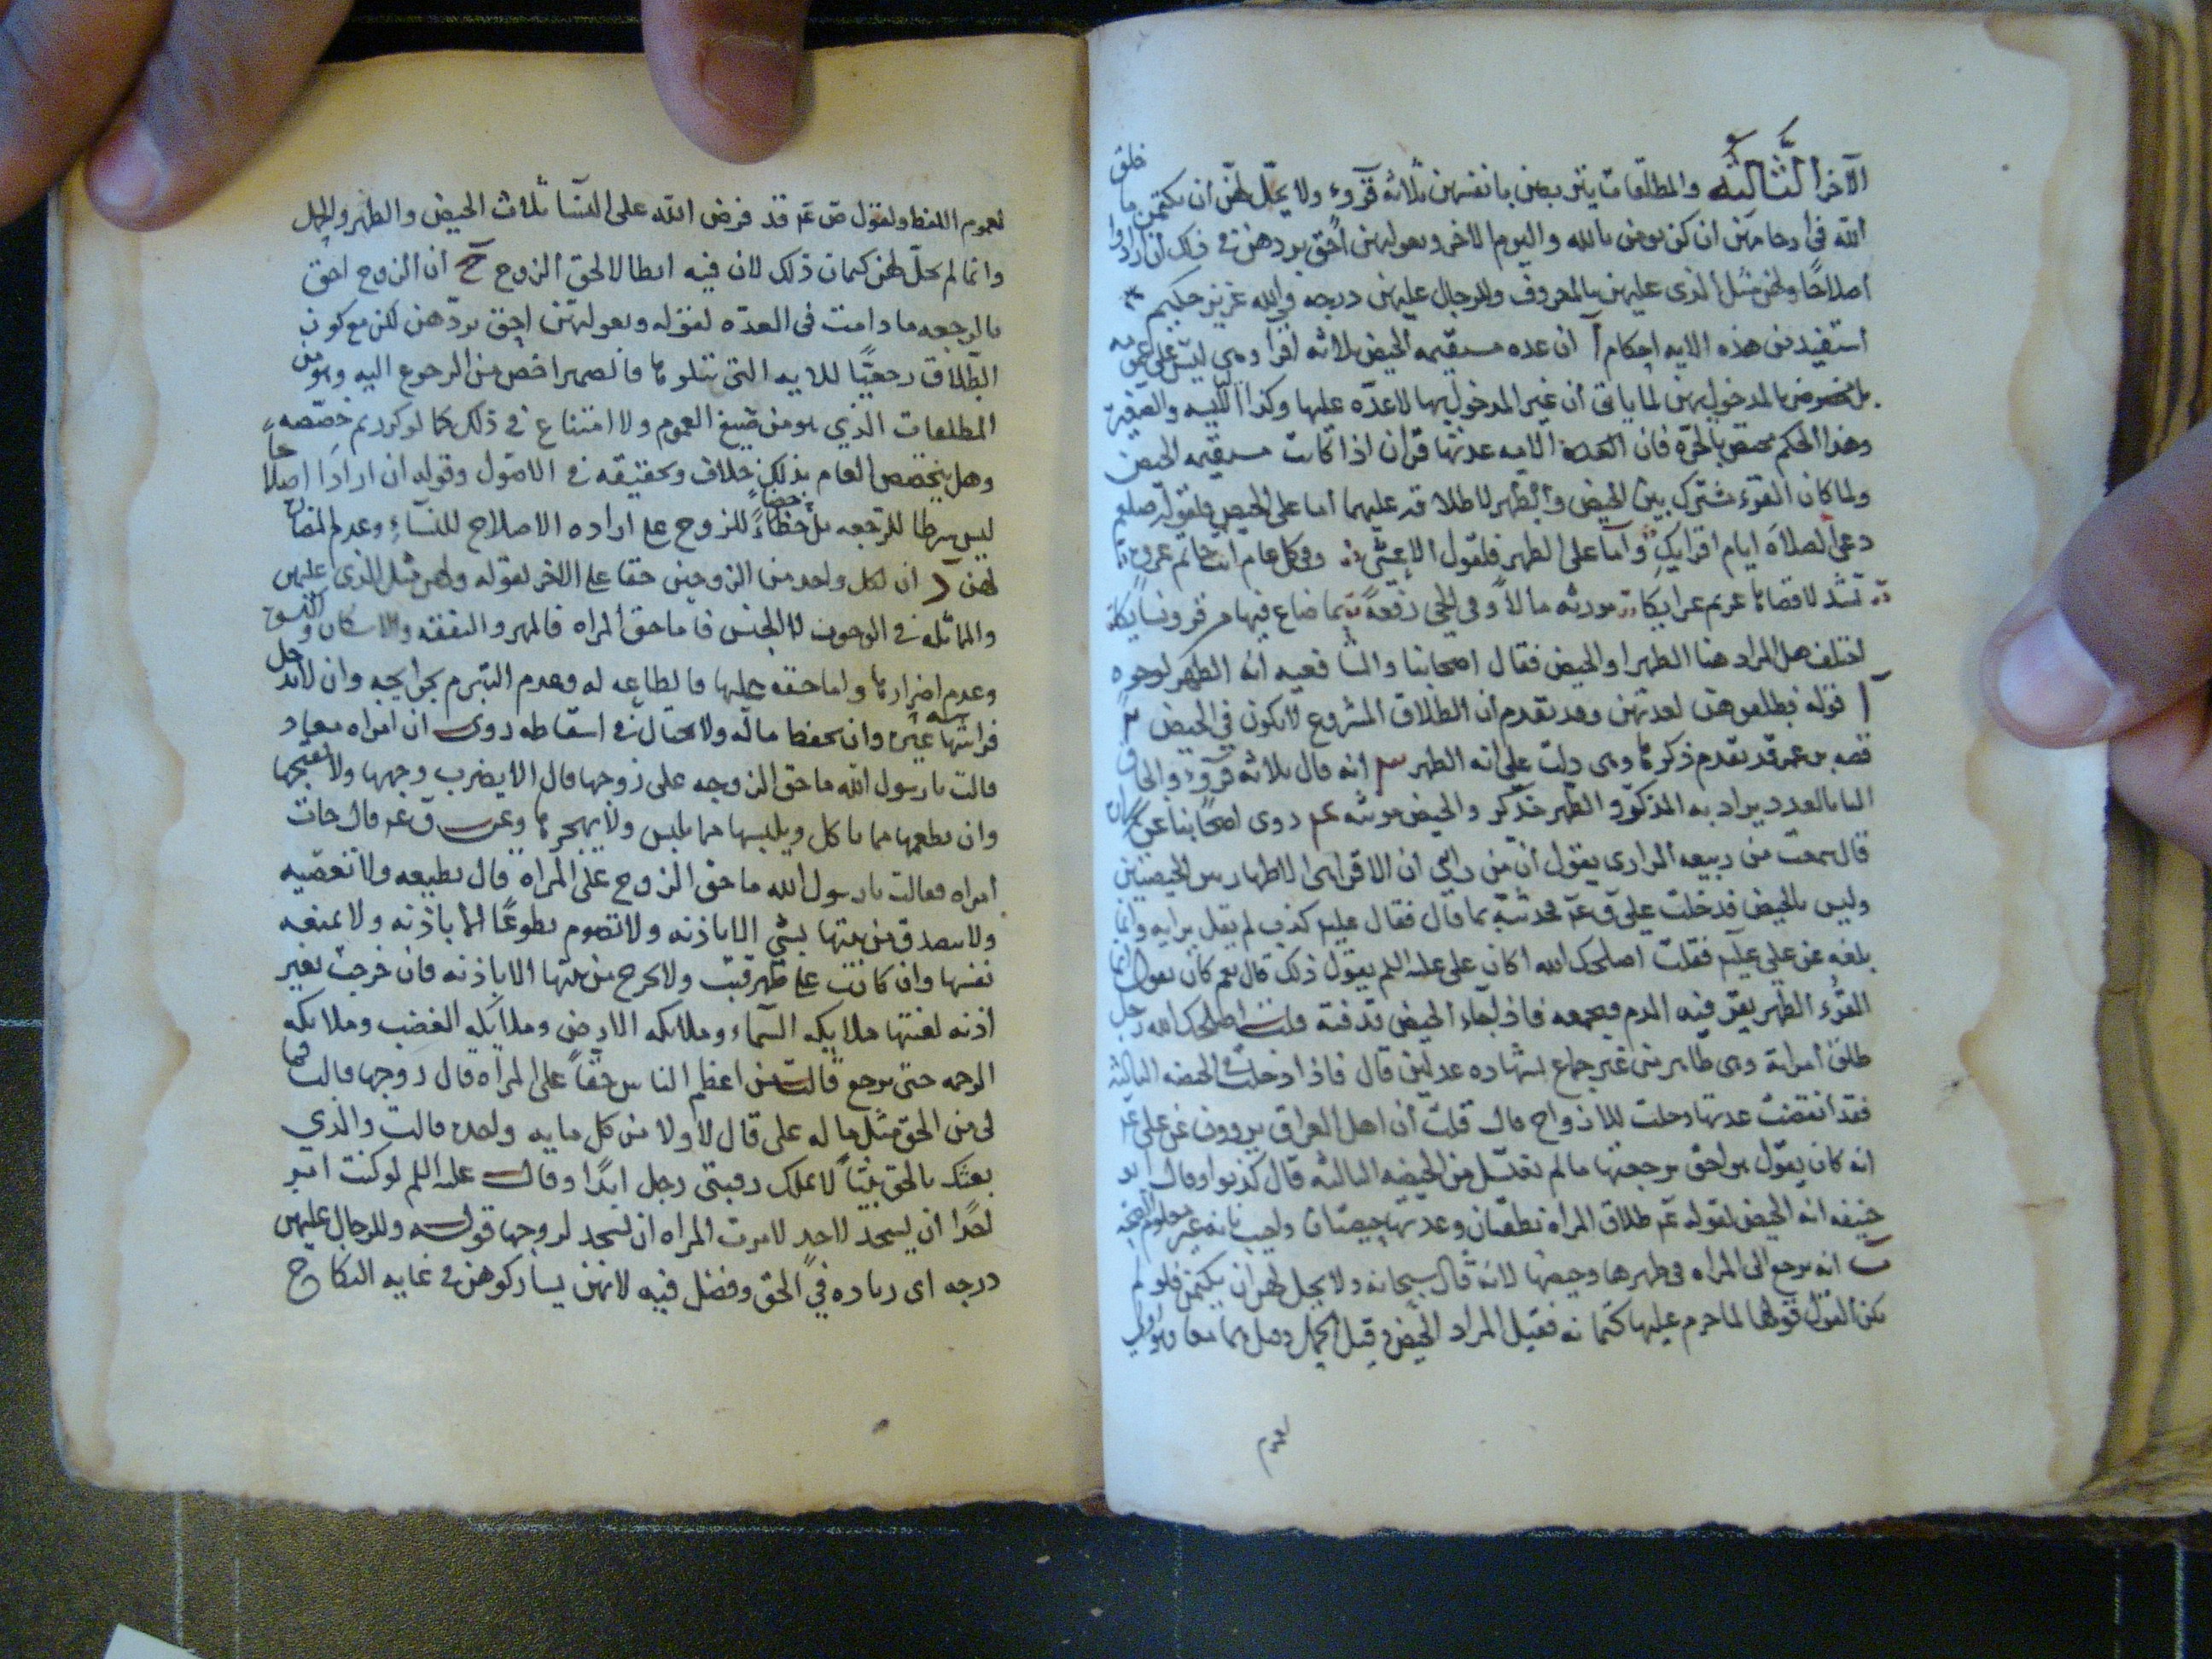 الآخر الثالثه والمطلقات يتربصن بانفسهن ثلاثة قروء ولا يحل لهن أن يكتمن ما خلق
الله في ارحامهن ان كن يومن بالله واليوم الاخر وبعولتهن احق بردهن في ذلك ان ارادوا
اصلاحا ولهن مثل الذى عليهن بالمعروف وللرجال عليهن درجه والله عزيز حكيم
استفيد من هذه الايه احكام أ ان عده مستقيمه الحيض ثلاثه اقرا وهي ليس على عمومه
بل مخصوص بالمدخول بهن لما ياتى أن غير المدخول بها لا عده عليها وكذا اليايسه والصغيره
وهذا الحكم مختص بالحره فان الامه عدتها قرآن اذا كانت مستقيمه الحيض
ولما كان القرء مشترك بين الحيض والطهر لاطلاقه عليهما أما على الحيض فلقوله صلعم
دعى الصلاة ايام اقرايك وأما على الطهر فلقول الاعشى وفي كل عام انت جاشم غزوة
تشد لاقصاها عزيم عزايكا مورثه مالا وفي الحى رفعة بما ضاع فيها من قروء نسايكا
اختلف هل المراد هنا الطهر او الحيض فقال اصحابنا والشافعيه أنه الطهر لوجوه
أ قوله فطلقوهن لعدتهن وقد تقدم أن الطلاق المشروع لا يكون في الحيض
قصه بن عمر قد تقدم ذكرها وهى دلت على انه الطهر انه قال ثلاثه قروء والحاق
التا بالعدد يراد به المذكر والطهر مذكر والحيض مونثه روى اصحابنا عن
قال سمعت من ربيعه الراى يقول أن من راى أن الاقرا هى الاطهار بين الحيضتين
وليس بالحيض فدخلت على فحدثته بما قال فقال كذب لم يقل برايه وانما
بلغه عن على فقلت اصلحك الله اكان على عليه السلم يقول ذلك قال نعم كان يقول انما
القرء الطهر يقر فيه الدم فيجمعه فاذا جاء الحيض قذفته قلت اصلحك الله رجل
طلق أمراته وهى طاهر من غير جماع بشهاده عدلين قال فاذا دخلت في الحيضه الثالثه
فقد انقضت عدتها وحلت للازواج قال قلت أن اهل العراق يروون عن على
انه كان يقول هو احق برجعتها ما لم تغتسل من الحيضه الثالثه قال كذبوا وقال ابو
حنيفه انه الحيض لقوله طلاق المراة تطلقتان وعدتها حيضتان واجيب بانه غير معلوم الصحه
ب انه يرجع الى المراه في طهرها وحيضها لانه قال سبحانه ولا يحل لهن ان يكتمن فلو لم
يكن القول قولها لما حرم عليها كتمانه فقيل المراد الحيض وقيل الحمل وقيل هما معا وهو اولى
لعموم اللفظ ولقول قد فرض الله على النسا ثلاث الحيض والطهر والحمل
وانما لم يحل لهن كتمان ذلك لان فيه ابطالا لحق الزوج ج أن الزوج احق
بالرجعه ما دامت فى العده لقوله وبعولتهن احق بردهن لكن مع كون
الطلاق رجعيا للايه التى تتلوها فالضمير اخص من المرجوع اليه وهو من
المطلقات الذي هو من صيغ العموم ولا امتناع في ذلك كما لو كرر ثم خصصه
وهل يتخصص العام بذلك خلاف وتحقيقه في الاصول وقوله ان ارادا اصلاحا
ليس شرطا للرجعه بل للزوج على اراده الاصلاح للنساء وعدم المضار
لهن د ان لكل واحد من الزوجين حقا على الاخر لقوله ولهن مثل الذى عليهن
والمماثله في الوجوب لا الجنس فاما حق المراه فالمهر والنفقه والاسكان والكسوة
وعدم اضرارها واما حقه عليها فالطاعه له وعدم التبرم بحوايجه وان لا تدخل
فراشها غيره وان تحفظ ماله ولا تحتال في اسقاطه روى ان امراه معاذ
قالت يا رسول الله ما حق الزوجه على زوجها قال الا يضرب وجهها ولا يقبحها
وان يطعمها مما ياكل ويلبسها مما يلبس ولا يهجرها وعن قال جات
امراه فقالت يا رسول الله ما حق الزوج على المراه قال تطيعه ولا تعصيه
ولا تصدق من بيتها بشي الا باذنه ولا تصوم تطوعا الا باذنه ولا تمنعه
نفسها وان كانت على ظهر قتب ولا تخرج من بيتها الا باذنه فان خرجت بغير
اذنه لعنتها ملايكه السماء وملائكه الارض وملايكه الغضب وملايكه
الرحمه حتى ترجع قالت من اعظم الناس حقا على المراه قال زوجها قالت فما
لى من الحق مثل ما له على قال لا ولا من كل مايه واحده قالت والذي
بعثك بالحق نبيا لا يملك رقبتى رجل ابدا وقال عليه السلم لو كنت امر
احدا ان يسجد لاحد لامرت المراه ان تسجد لزوجها قوله وللرجال عليهن
درجه اى زياده في الحق وفضل فيه لانهن يشاركوهن في غايه النكاح